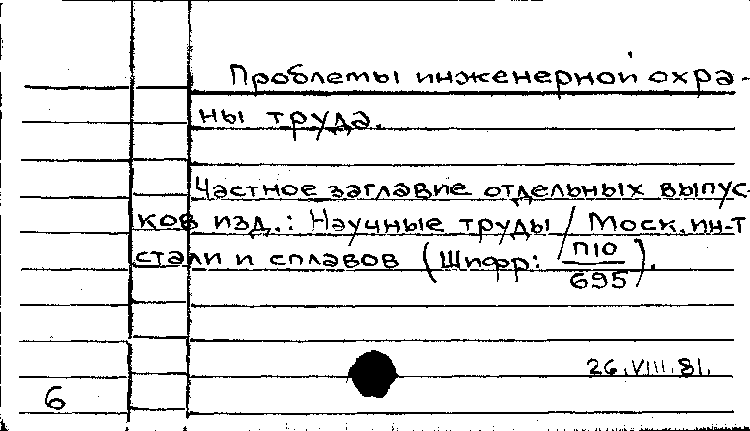 Проблемы инженерной охра-
ны труда.
Частное заглавие отдельных выпус-
ков изд.: Научные труды / Моск. ин-т
стали и сплавов (Шифр: П10/695).
26.VIII.81.
6